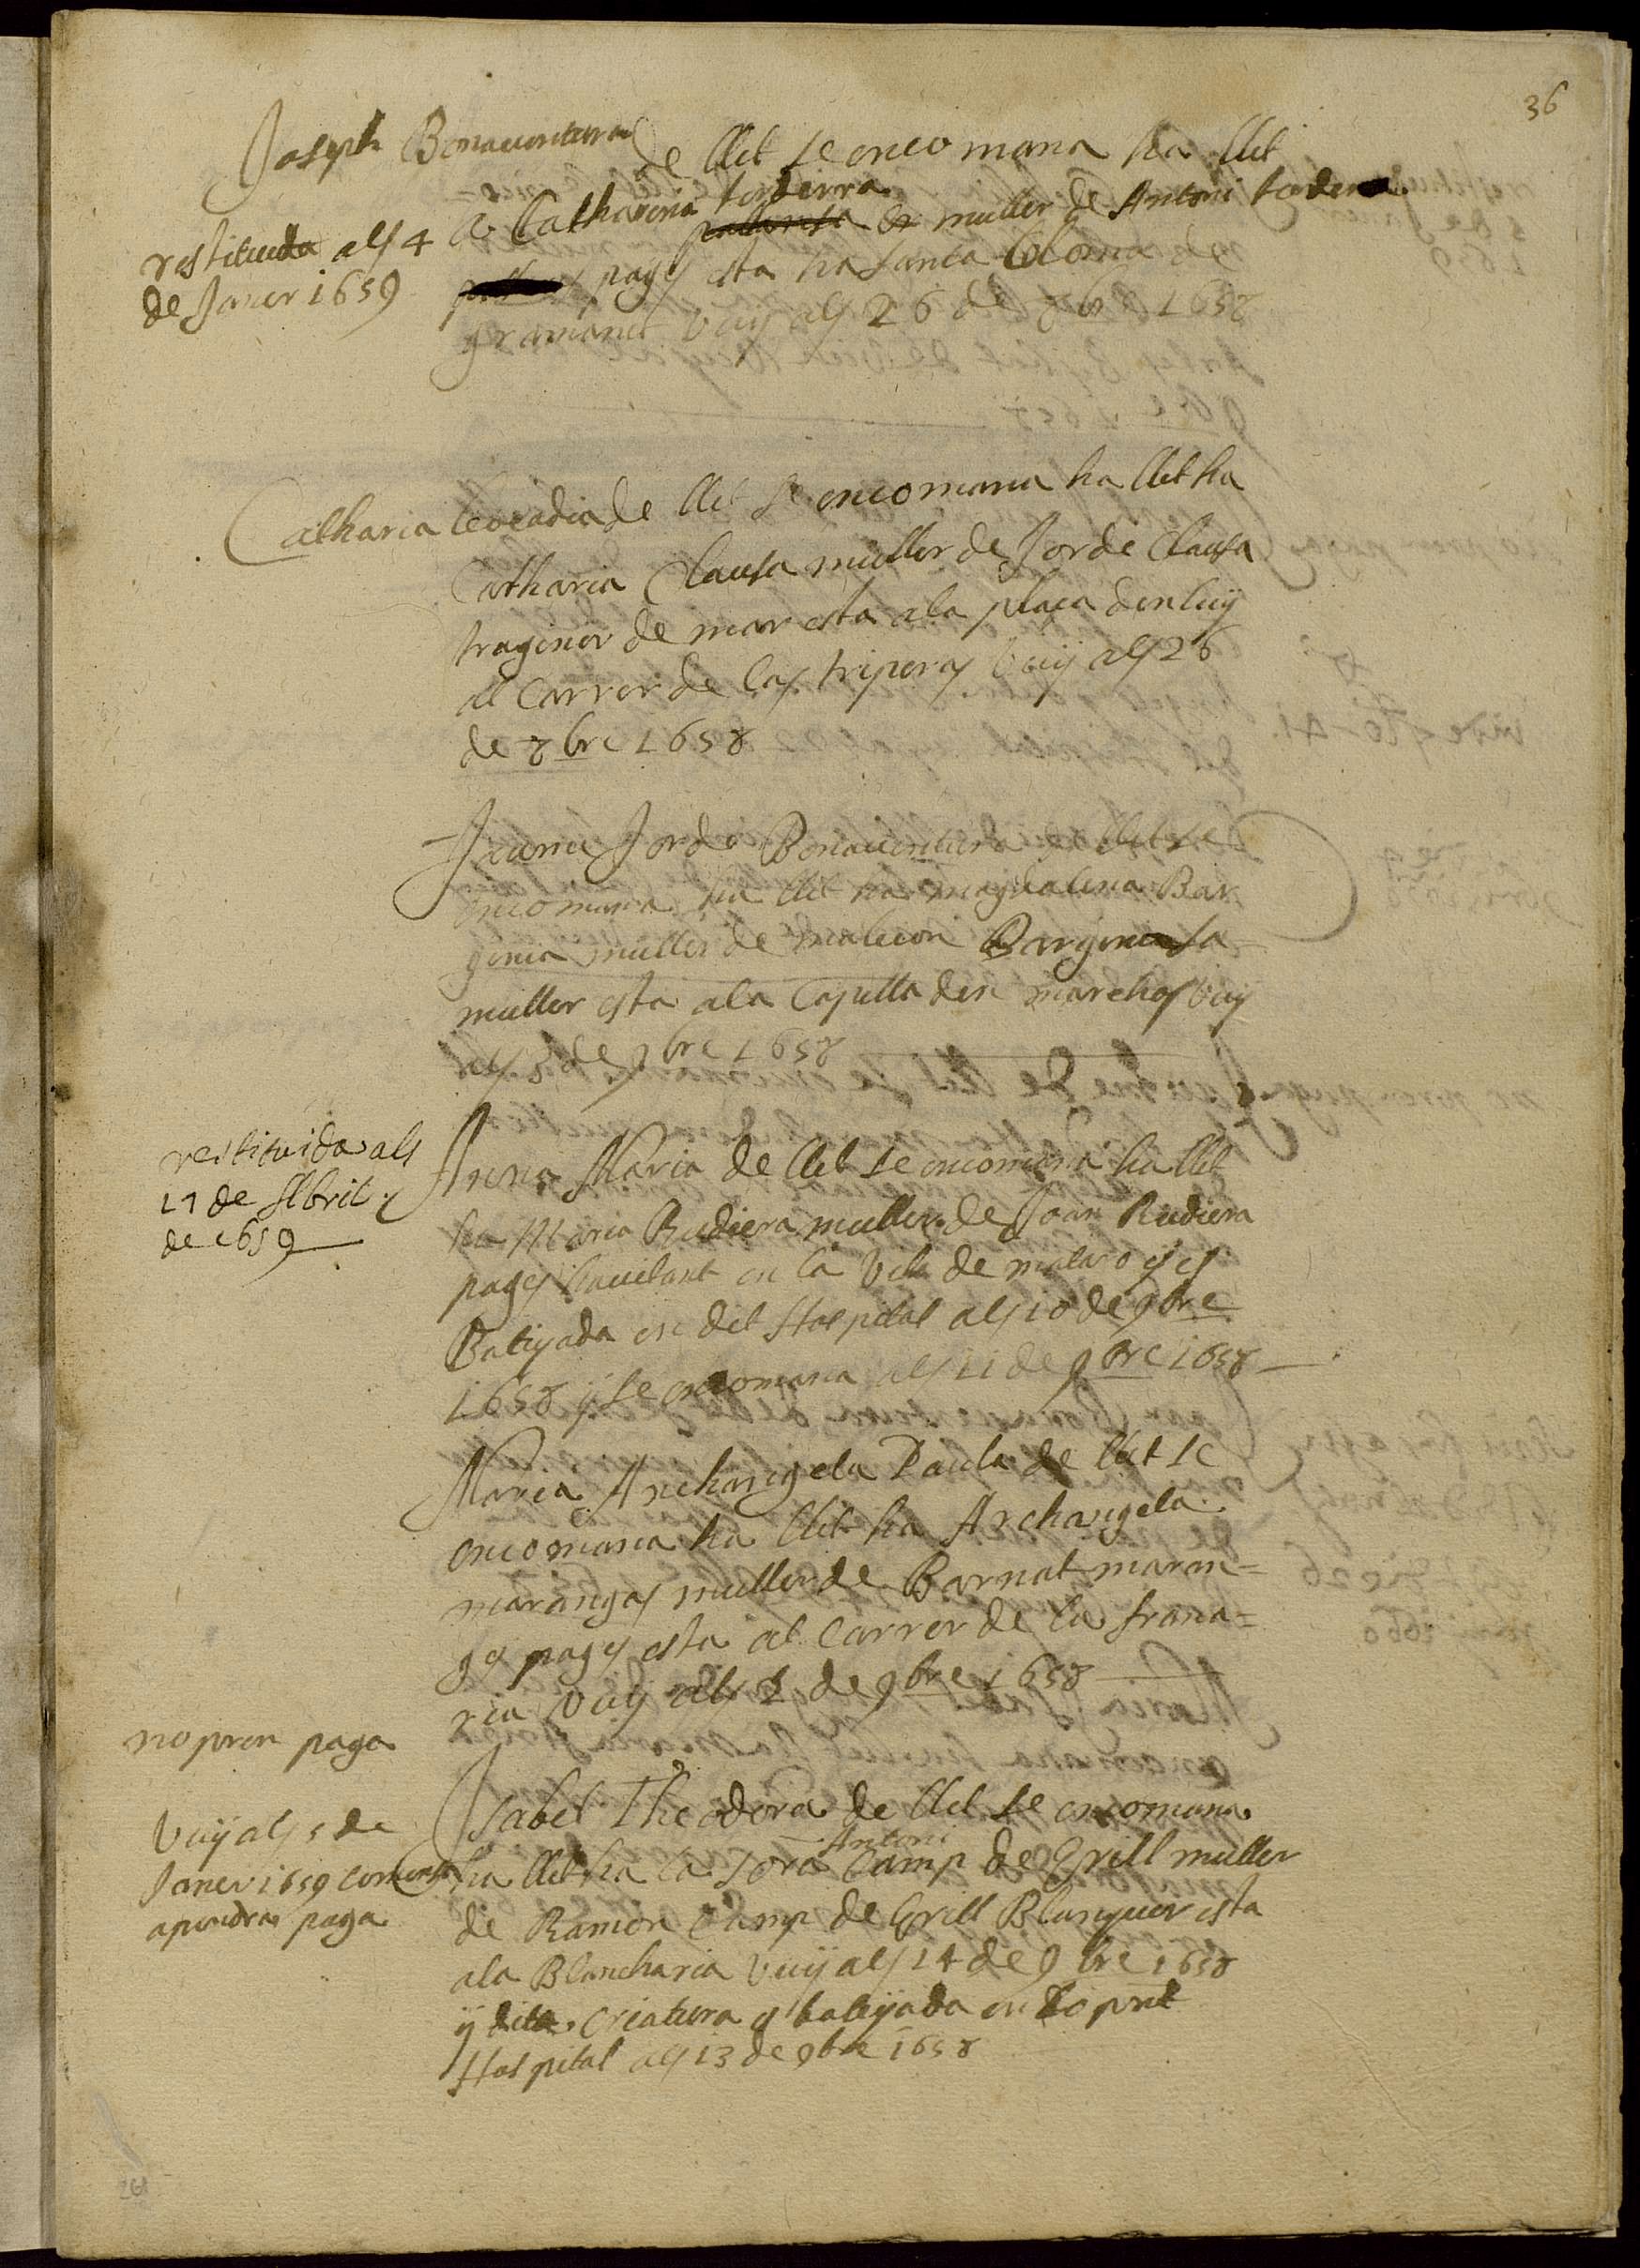 36
Joseph Bonaventura de llet se encomana ha llet
a Catharina torderra muller de Antoni tordera
pages esta ha Santa Coloma de
gramanet vuy als 26 de 8br 1658
restituida als 4
de Janer 1659
Catharia leocadia de llet se encomana ha llet ha
Catharia Clausa muller de Jorde Clausa
traginer de mar esta a la plaça den luy
al Carrer de las triperas vuy als 26
de 8bre 1658
Jaume Jorde Bonaventura de llet se
encomana ha llet ha magdalena Bar
genia muller de Bargenia sa
muller esta a la Capella den marchos vuy
als 3 de 9bre 1658
restituida als
17 de Abril
de 1659
Anna Maria de llet se encomana ha llet
ha Maria Rudiera muller de Joan Rudiera
pages havitant en la Vila de mataro y es
Batiyada en del Hospital als 10 de 9bre
1658 y se encomana als 11 de 9bre 1658
Maria Archangela Paula de llet se
encomana ha llet ha Archangela
marangas muller de Barnat maran=
ges pages esta al Carrer de la frana=
ria vuy als de 9bre 1658
no pren paga
Isabel Theodora de llet se encomana
ha llet ha la Sora Antoni Camp de Grill muller
de Ramon Camp de Grill Blanquer esta
a la Blancharia vuy als 14 de 9bre 1658
y dita Criatura es batiyada en lo prnt
Hospital als 13 de 9bre 1658
vuy als 5 de
Janer 1659 comensa
a pendra paga